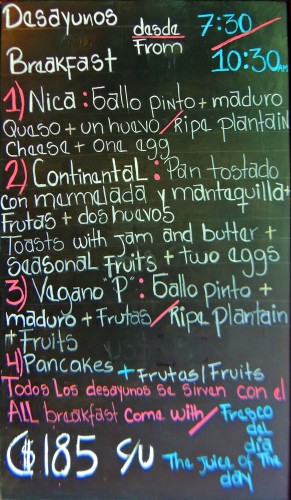 Desayunos desde 7:30
From
Breakfast 10:30AM
1) Nica: Gallo pinto + maduro
Queso + un huevo / Ripe plantain
Cheese + one egg
2) Continental: Pan tostado
con mermelada y mantequilla +
Frutas + dos huevos
Toasts with jam and butter +
Seasonal Fruits + two eggs
3) Vegano "P": Gallo pinto +
maduro + Frutas / Ripe Plantain
+ Fruits
4) Pancakes + Frutas / Fruits
Todos los desayunos se sirven con el
ALL breakfast come with / Fresco
del
día
C$185 c/u The juice of The
day